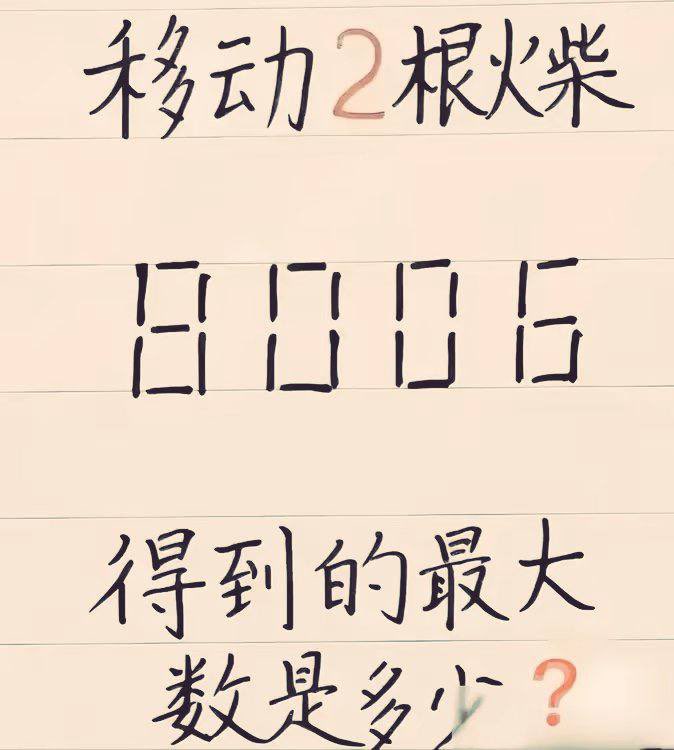 移动2根火柴
8006
得到的最大
数是多少?